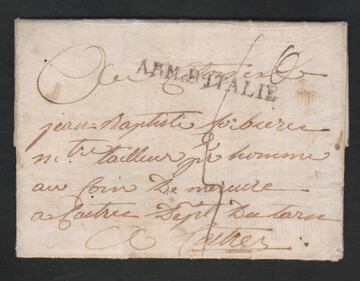 Au Citoyen
ARM. D'ITALIE
jean Baptiste
mtre tailleur pr homme
au Coin De mercure
a Castres Dept Du tarn
A Castres